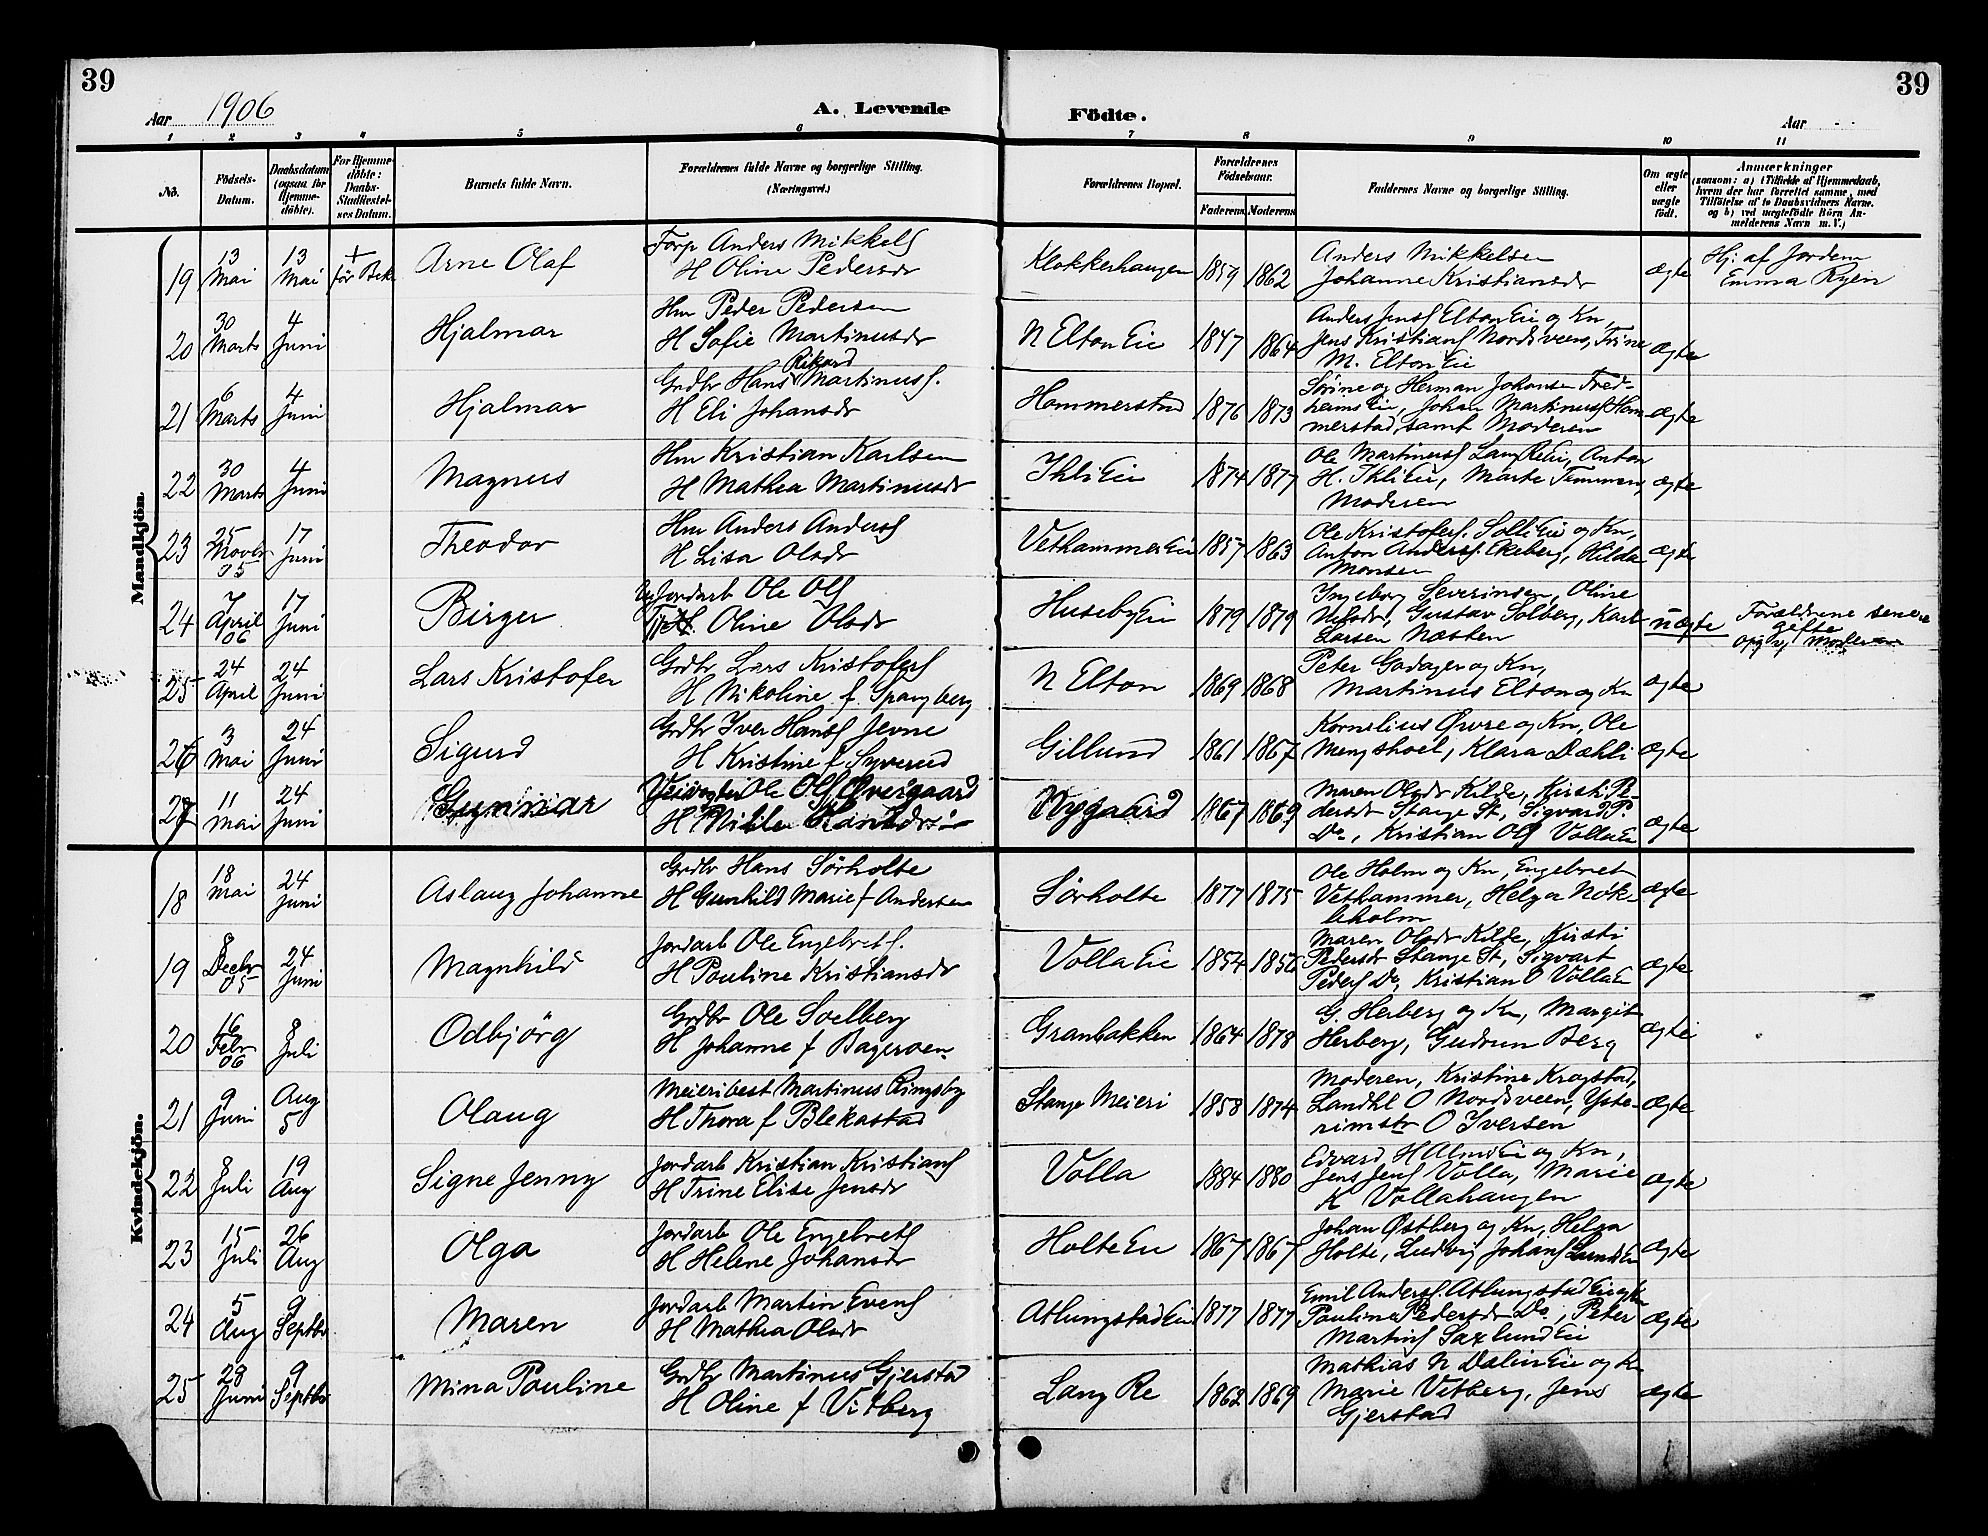 39
39
Aar 1906
A. Levende
Födte.
Aar
1 2 3 4 5 6 7 8 9 10 11
No.
Födsels-Datum.
Daabsdatum (ogsaa for Hjemme-döbte).
For Hjemme-döbte: Daabs-Stadfæstel-ses Datum.
Barnets fulde Navn.
Forældrenes fulde Navne og borgerlige Stilling. (Næringsvei.)
Forældrenes Bopæl.
Forældrenes Födselsaar.
Faderens Moderens
Faddernes Navne og borgerlige Stilling.
Om ægte eller uægte födt.
Anmærkninger
(saasom: a) i Tilfælde af Hjemmedaab, hvem der har forrettet samme, med Tilföielse af to Daabsvidners Navne. og b) ved uægtefödte Börn An-melderens Navn m. V.)
Mandkjön
19 13 Mai 13 Mai + för Bek. Arne Olaf
Forp Anders Mikkels
H Oline Pedersdr
Klokkerhaugen 1859 1862
Anders Mikkelsen
Johanne Kristiansdr
ægte
Hj: af Jordem
Emma Ryen
20 30 Marts 4 Juni Hjalmar
Hm Peder Pedersen
H Sofie Martinusdr
N Elton Eie 1847 1864
Anders Jens Elton Eie og Kn,
Jens Kristians Nordsveen, Trine
M. Elton Eie
ægte
21 6 Marts 4 Juni Hjalmar
Rikard
Grdbr Hans Martinuss.
H Eli Johansdr
Hommerstad 1876 1873
Sörine og Herman Johansen Fred-
heim Eie, Johan Martinuss Hom
merstad, samt Moderen
ægte
22 30 Marts 4 Juni Magnus
Hm Kristian Karlsen
H Mathea Martinusdr
Ihli Eie 1874 1877
Ole Martinuss Lang Re Eie, Anton
H. Ihli Eie, Marte Timmen,
Moderen
ægte
23 25 Novbr 05 17 Juni Theodor
Hm Anders Anders
H Lisa Olsdr
Vethammer Eie 1857 1863
Ole Kristofers. Solli Eie og Kn,
Anton Anders. Ekeberg, Hilda
Monsen
ægte
24 7 April 06 17 Juni Birger
Jordarb Ole Ols
Oline Olsdr
Huseby Eie 1879 1879
Ingeborg Severinsen, Oline
Nilsdr, Gustav Solberg, Karl
Larsen Næsten
uægte
Forældrene senere
gifte
Opg v/ Moderen
25 24 April 24 Juni Lars Kristofer
Grdbr Lars Kristofers
H Nikoline f. Spangberg
N Elton 1869 1868
Peter Godager og Kn,
Martinus Elton og Kn
ægte
26 3 Mai 24 Juni Sigurd
Grdbr Iver Hans Jevne
H Kristine f Syverud
Gillund 1861 1867
Kornelius Øvre og Kn, Ole
Mengshoel, Klara Dæhli
ægte
27 11 Mai 24 Juni Gunnar
Veivogter Ole Ols Øvergaard
H Hansdr
Nygaard 1867 1869
Maren Olsdr Kilde, Kirsti Pe-
dersdr Stange St, Sigvard P.
Do, Kristian Ols Volla Eie
ægte
Kvindekjön.
18 18 Mai 24 Juni Aslaug Johanne
Grdbr Hans Sörholte
H Gunhild Marie f Andersen
Sörholte 1877 1875
Ole Holm og Kn, Engebret
Vethammer, Helga Nök-
leholm
ægte
19 8 Decbr 05 24 Juni Magnhild
Jordarb Ole Engebrets.
H Pouline Kristiansdr
Volla Eie 1854 1856
Maren Olsdr Kilde, Kirsti
Pedersdr Stange St, Sigvart
Peders Do, Kristian O Volla Eie
ægte
20 16 Febr 06 8 Juli Odbjörg
Grdbr Ole Solberg
H Johanne f Bageroen
Granbakken 1864 1878
G. Herberg og Kn, Margit
Herberg, Gudrun Berg
ægte
21 9 Juni Aug 5 Olaug
Meieribest Martinus Ringsby
H Thora f Blekastad
Stange Meieri 1858 1874
Moderen, Kristine Krogstad,
Landhl O Nordsveen, Yste-
rimstr O Iversen
ægte
22 8 Juli 19 Aug Signe Jenny
Jordarb Kristian Kristians
H Trine Elise Jensdr
Volla 1884 1880
Edvard H Alm Eie og Kn,
Jens Jens Volla, Marie
K Vollahaugen
ægte
23 15 Juli 26 Aug Olga
Jordarb Ole Engebrets
H Helene Johansdr
Holte Eie 1867 1867
Johan Østberg og Kn, Helga
Holte, Ludvig Johans Lund Eie
ægte
24 5 Aug 9 Septbr Maren
Jordarb Martin Evens
H Mathea Olsdr
Atlungstad Eie 1877 1877
Emil Anders. Atlungstad Eie og Kn
Paulina Pedersdr Do, Peter
Martins Saxlund Eie
ægte
25 28 Juni 9 Septbr Mina Pouline
Grdbr Martinus Gjerstad
H Oline f Vitberg
Lang Re 1862 1869
Mathias N Dalin Eie og K
Marie Vitberg, Jens
Gjerstad
ægte